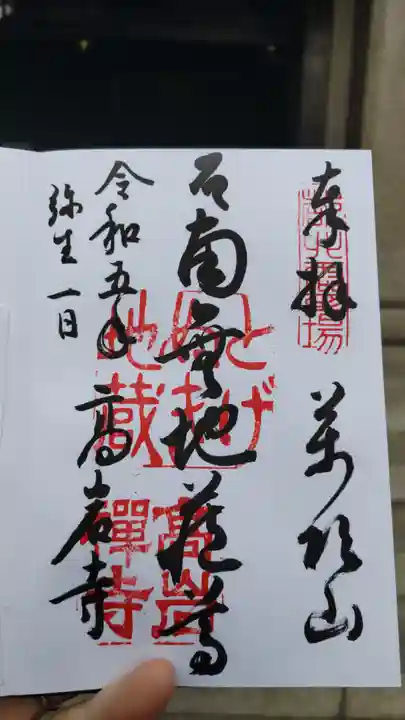 奉拝 萬頂山
南無地蔵尊
令和五年 高岩寺
弥生一日
とげ
ぬき
地蔵
高岩
禅寺